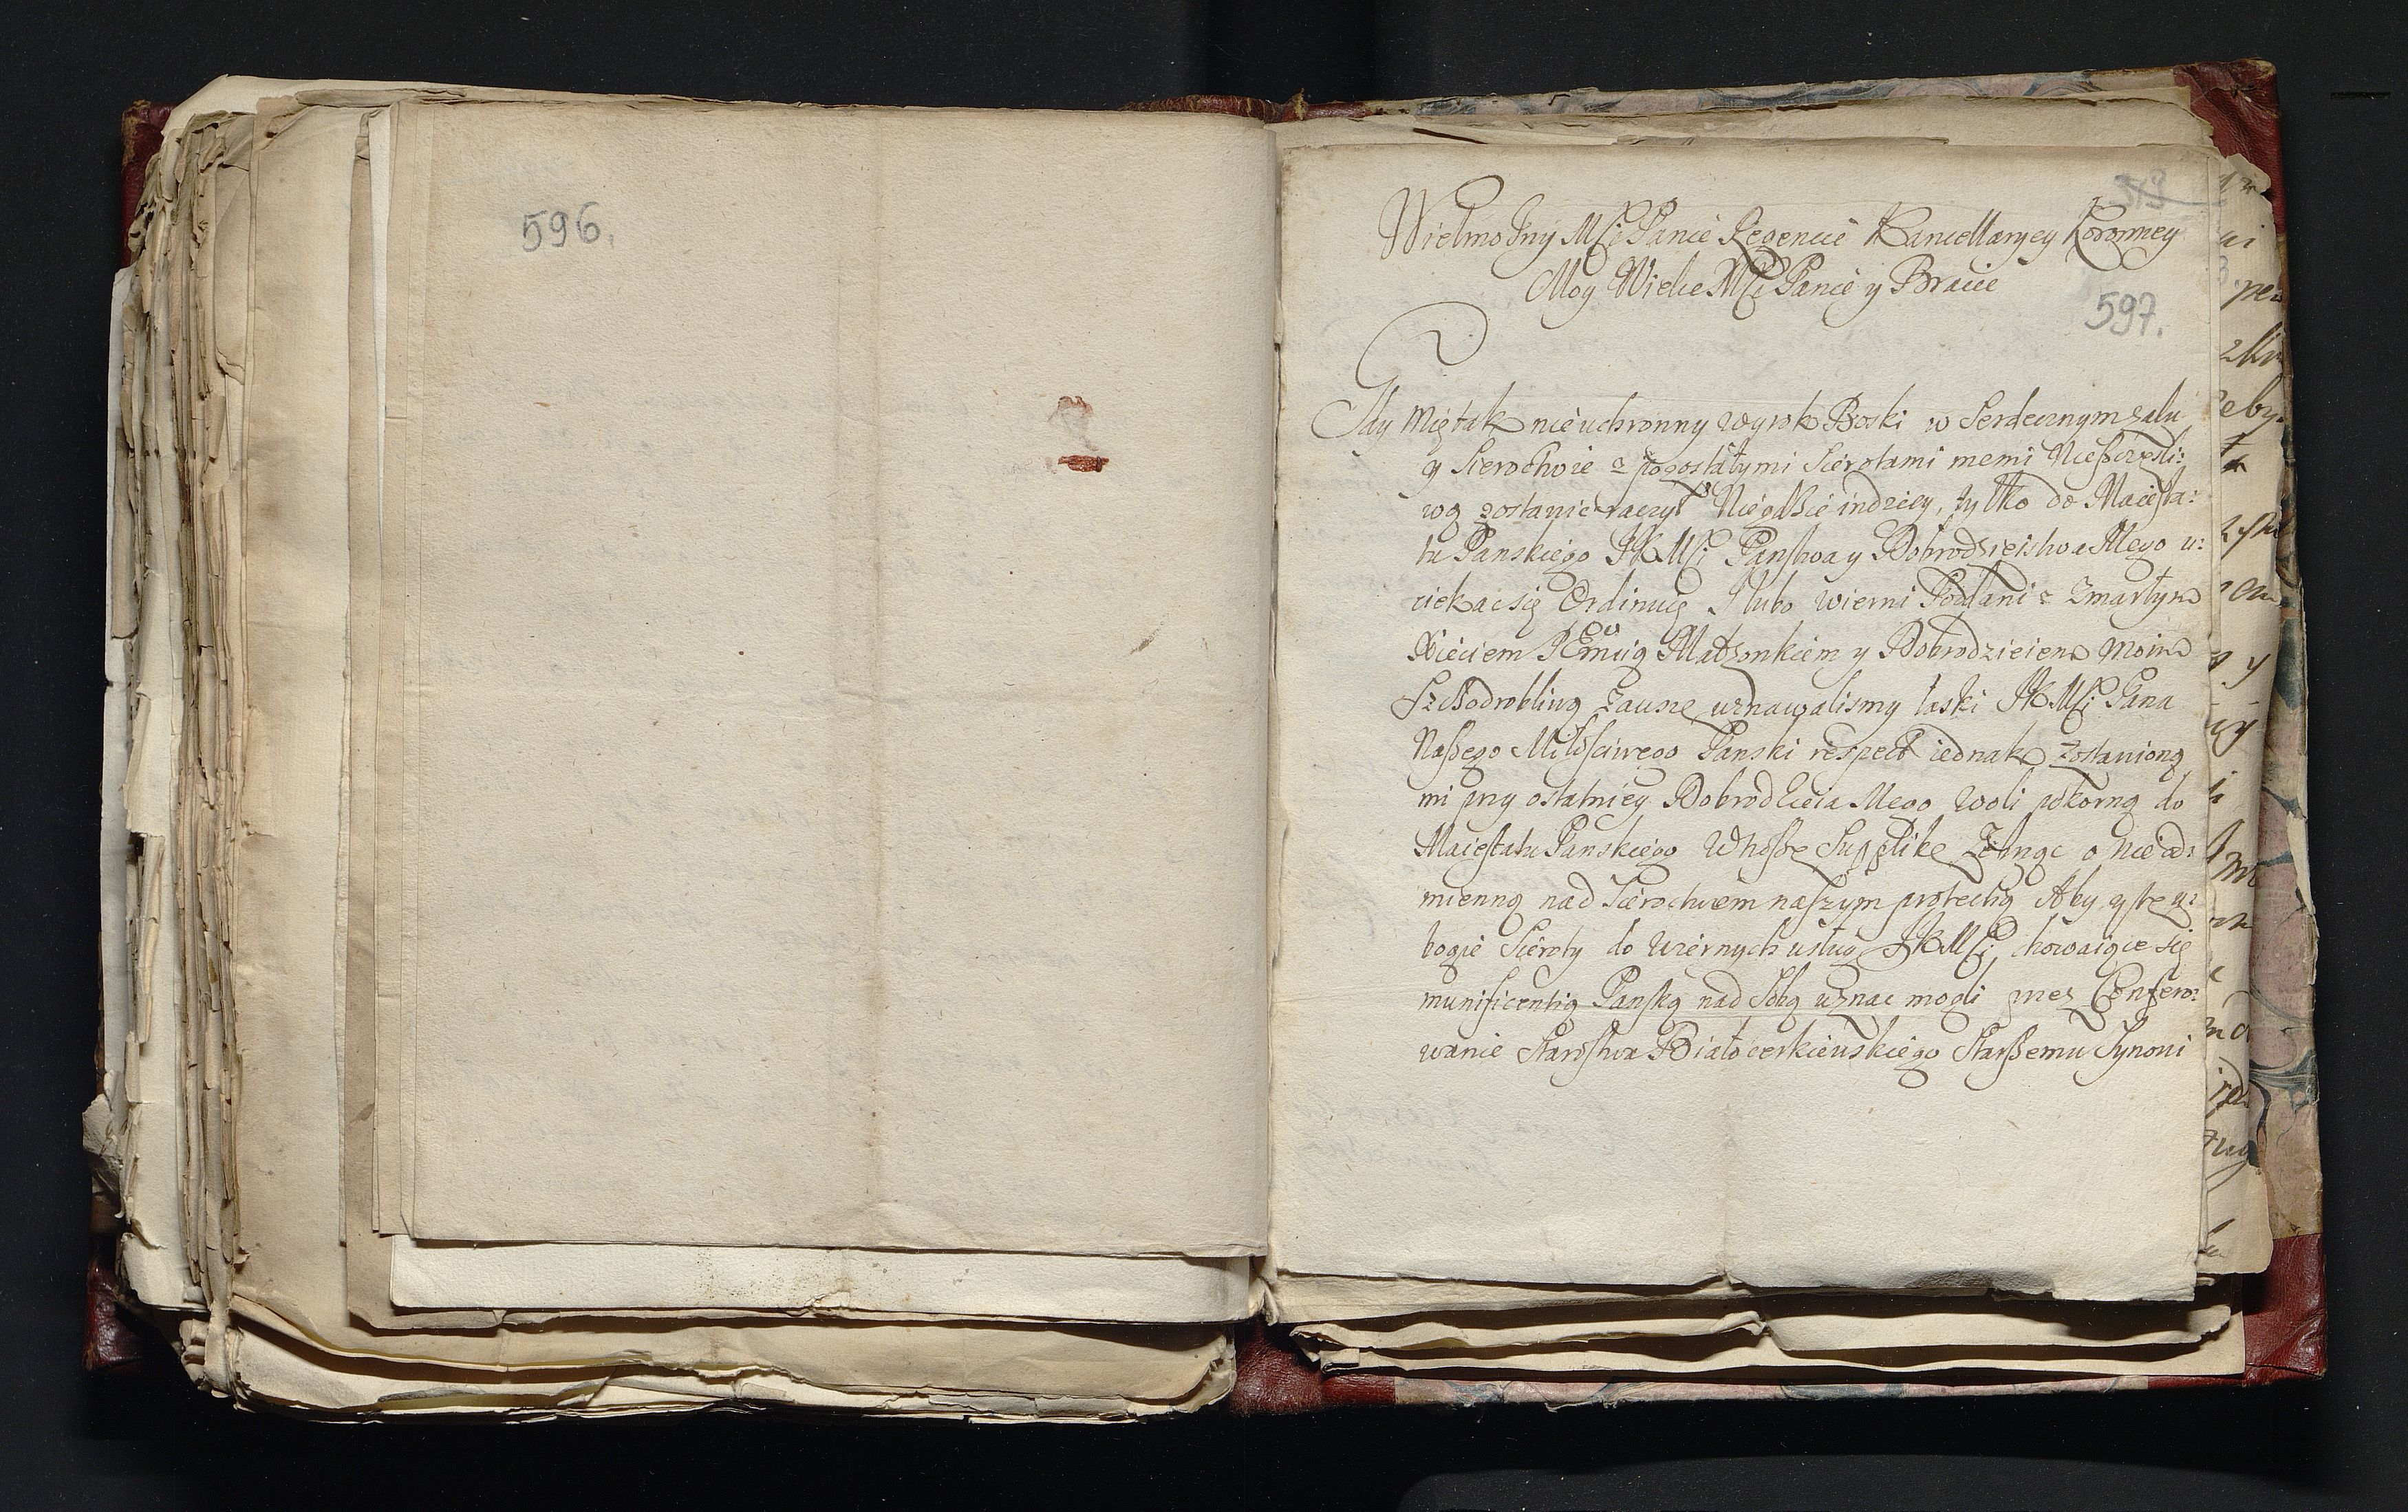 596.
519
Wielmożny Mści Panie Regencie Kancellaryey Koronney
Moy Wielce Mści Panie y Bracie
597.
Gdy mię tak nieuchronny wyrok Boski w Serdecznym zalu
y Sieroctwie z pozostałymi Sierotami memi Nieszczęśli:
wą zostawic raczył Niegdzie indziey, tylko do Maiesta:
tu Panskiego JKMści Państwa y Dobrodzieistwa Mego u:
ciekac się Ordinuię I lubo wierni Poddani z Zmarłym
Xięciem JEmcią Małzonkiem y Dobrodzieiem moim
Szczodrobliwą zausze uznawalismy łaski JKMści Pana
Naszego Miłościwego Panski respect iednak zostawioną
mi przy ostatniey Dobrodzieia Mego woli pokorną do
Maiestatu Panskiego Whoszę Supplikę Zebrząc o nieod:
mienną nad Sieroctwem naszym protectią Aby y te u:
bogie Sieroty do wiernych usług JKMści, howaiące się
munificentią Panską nad Sobą uznac mogli przez Confero:
wanie Starostwa Białocerkiewskiego Starszemu Synowi